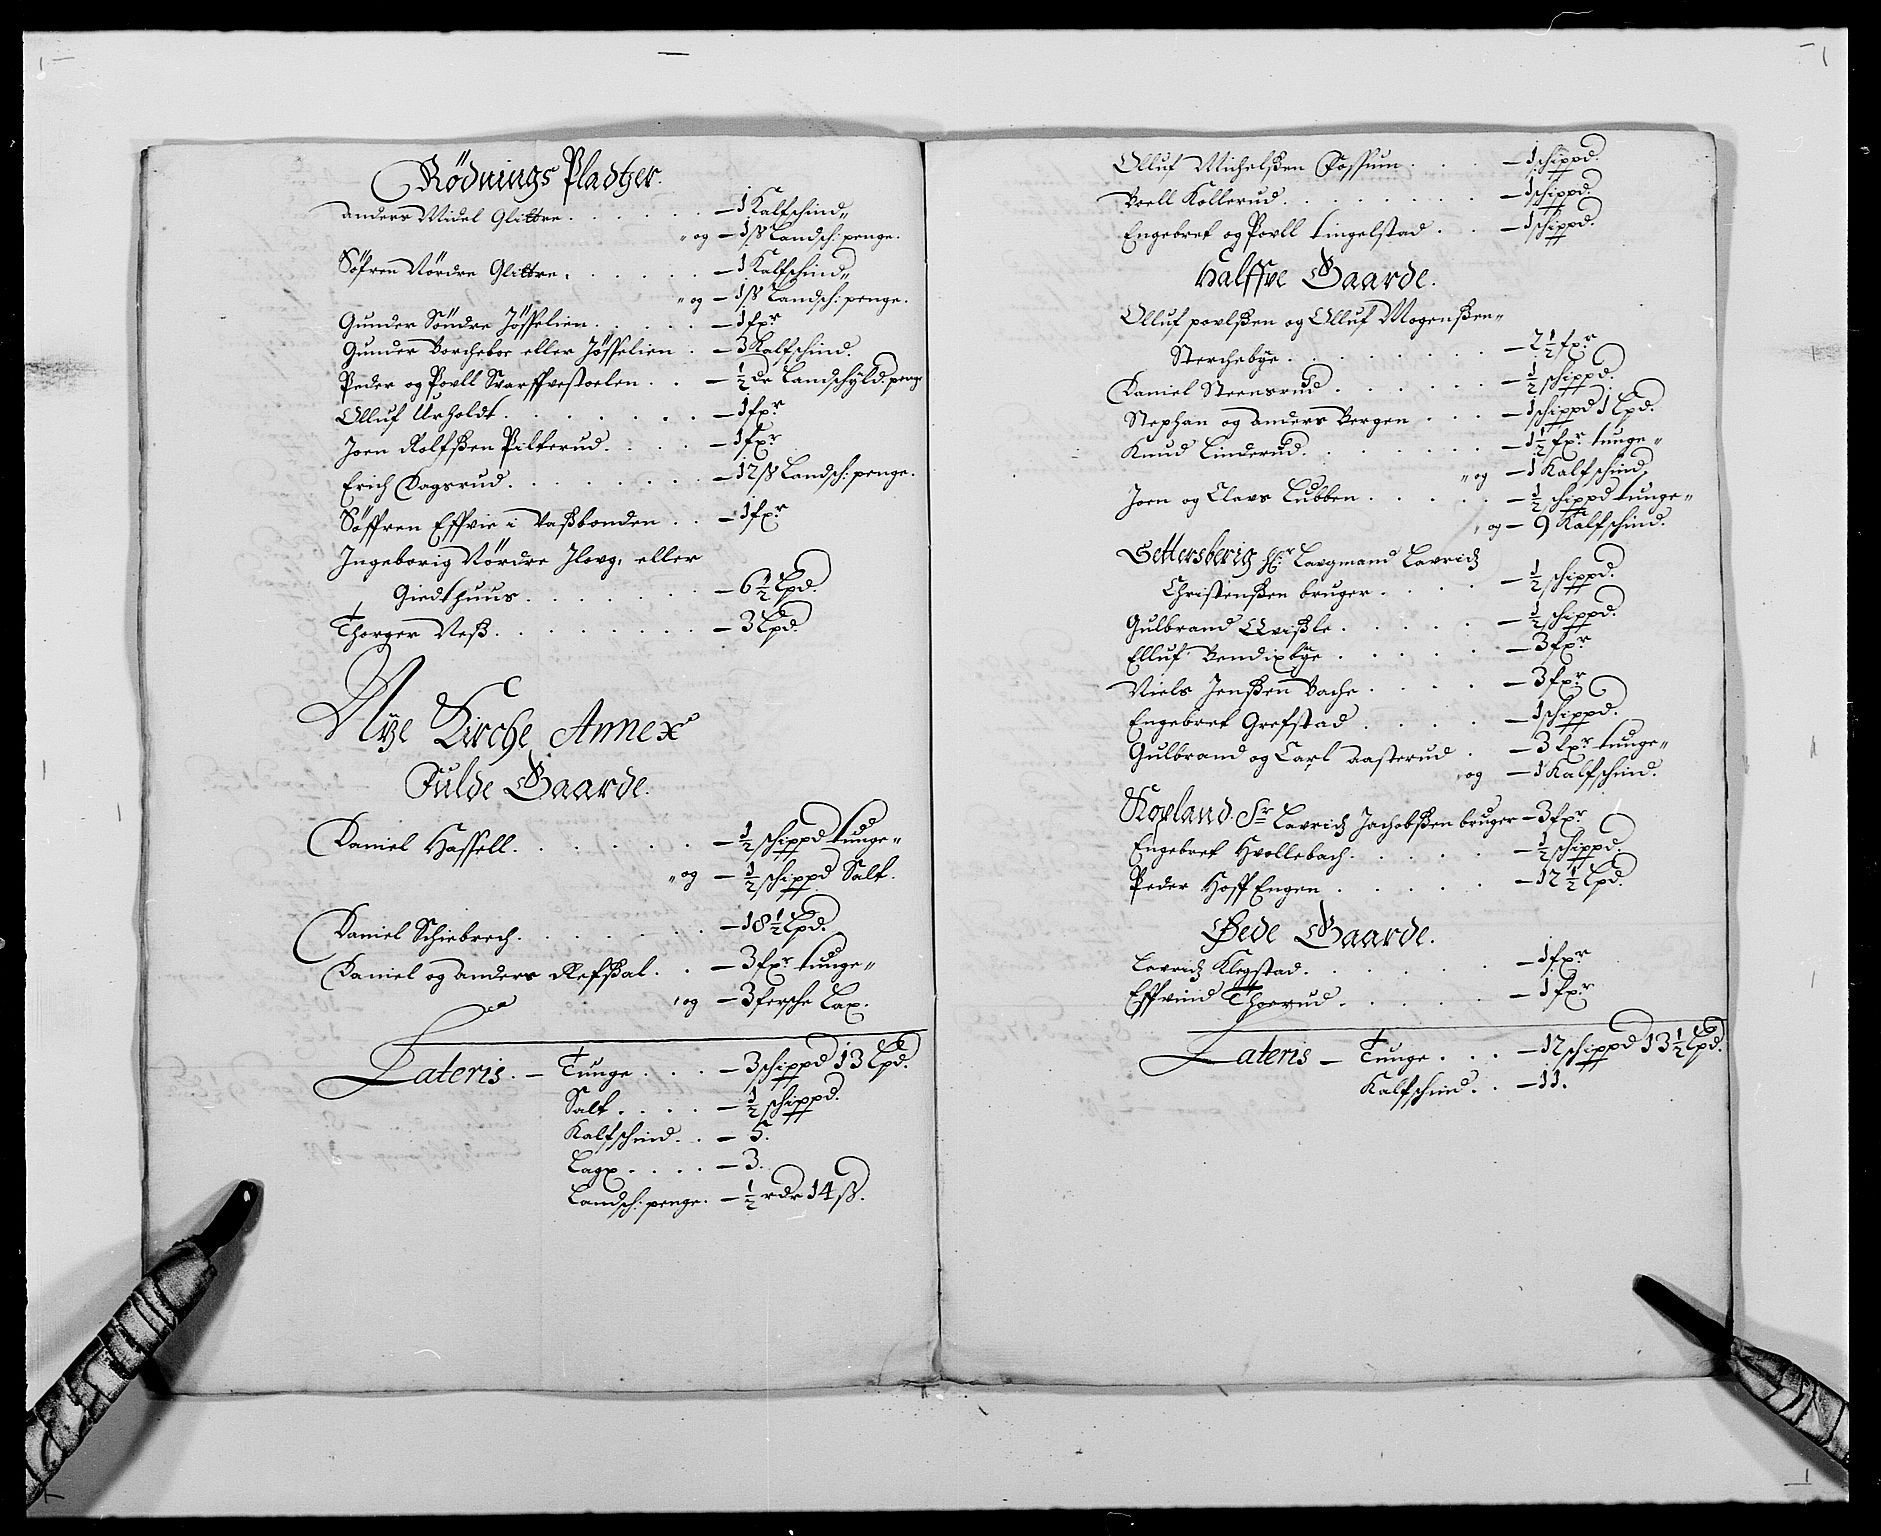 Rödnings Pladtzer.
Anders Midel Glittre . . . . . . — 1 Kalfschind„
„ og — 1 ß Landsch: penge.
Söfren Nördre Glittre . . . . . — 1 Kalfschind„
„ og — 1 ß Landsch: penge.
Gunder Söndre Jösselien . . . . . — 1 fxr
Gunder Borcheboe eller Jösselien . — 3 Kalfschind.
Peder og Povll Svarffvestoelen . . — ½ dr Landschyld: penge
Olluf Urholdt . . . . . . . — 1 fxr
Joen Rolfßen Pilterud . . . . — 1 fxr
Erich Dagsrud . . . . . . . — 12 ß Landsch: penge.
Söffren Effvie i Vaßbonden . . — 1 fxr
Ingeborig Nördre Ilovg, eller
Giedthuus . . . . . . . — 6½ Lpd.
Thorger Neß . . . . . . . . — 3 Lpd.
Nÿe Kirche Annex
Fulde Gaarde.
Daniel Hassell . . . . . . — ½ schippd tunge„
„ og — ½ schippd Salt.
Daniel Schiebrech . . . . . . — 18½ Lpd.
Daniel og Anders Refsal . . — 3 fxr tunge„
, og — 3 fersche Lax.
Lateris. — Tunge . . . — 3 schippd 13 Lpd.
Salt . . . . — ½ schippd.
Kalfschind . . — 5.
Lagx . . . . — 3.
Landsch: penge. — ½ rdr 14 ß.
Olluf Michelßen Fossum . . . — 1 schippd.
Boell Kollerud . . . . . . . — 1 schippd.
Engebret og Povll tingelstad . . — 1 schippd.
Halffve Gaarde.
Olluf povlßen og Olluf Mogenßen„
Sterchebye . . . . . . . — 2½ fxr
Daniel Steensrud . . . . . . — ½ schippd.
Stephan og Anders Bergen . . . — 1 schippd 1 Lpd.
Knud Linderud . . . . . . . — 1½ fxr tunge„
„ og — 1 Kalfschind.
Joen og Clavs Lubben . . . . . — ½ schippd tunge„
, og — 9 Kalfschind.
Settersberig Hr: Laugmand Lavridz
Christenßen bruger . . . . — ½ schippd.
Gulbrand Qvißle . . . . . — ½ schippd.
Elluf Bendixbye . . . . . — 3 fxr
Niels Jenßen Bache . . . . — 3 fxr
Engebret Grefstad . . . . — 1 schippd.
Gulbrand og Carl Aasterud . — 3 fxr tunge„
, og — 1 Kalfschind.
Kopland Sr Lavridz Jachobßen bruger — 3 fxr
Engebret Hvollebach . . . . . — ½ schippd.
Peder Hoff Engen . . . . . — 12½ Lpd.
Øede Gaarde.
Lavridz Klegstad . . . . . . — 1 fxr
Effvind Thoerud . . . . . — 1 fxr
Lateris — Tunge . . . — 12 schippd 13½ Lpd.
Kalfschind . . — 11.